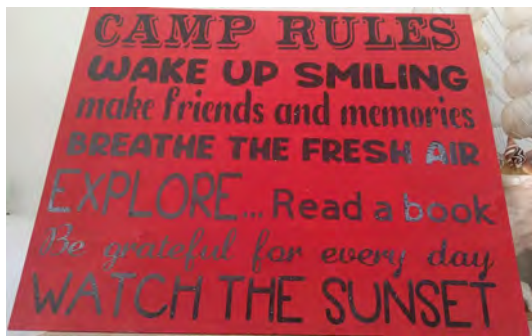 CAMP RULES
WAKE UP SMILING
make friends and memories
BREATHE THE FRESH AIR
EXPLORE... Read a book
Be grateful for every day
WATCH THE SUNSET